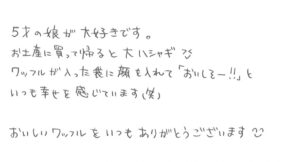 5才の娘が大好きです。
お土産に買って帰ると大ハシャギ
ワッフルが入った袋に顔を入れて「おいしそー!!」と
いつも幸せを感じています(笑)
おいしいワッフルをいつもありがとうございます